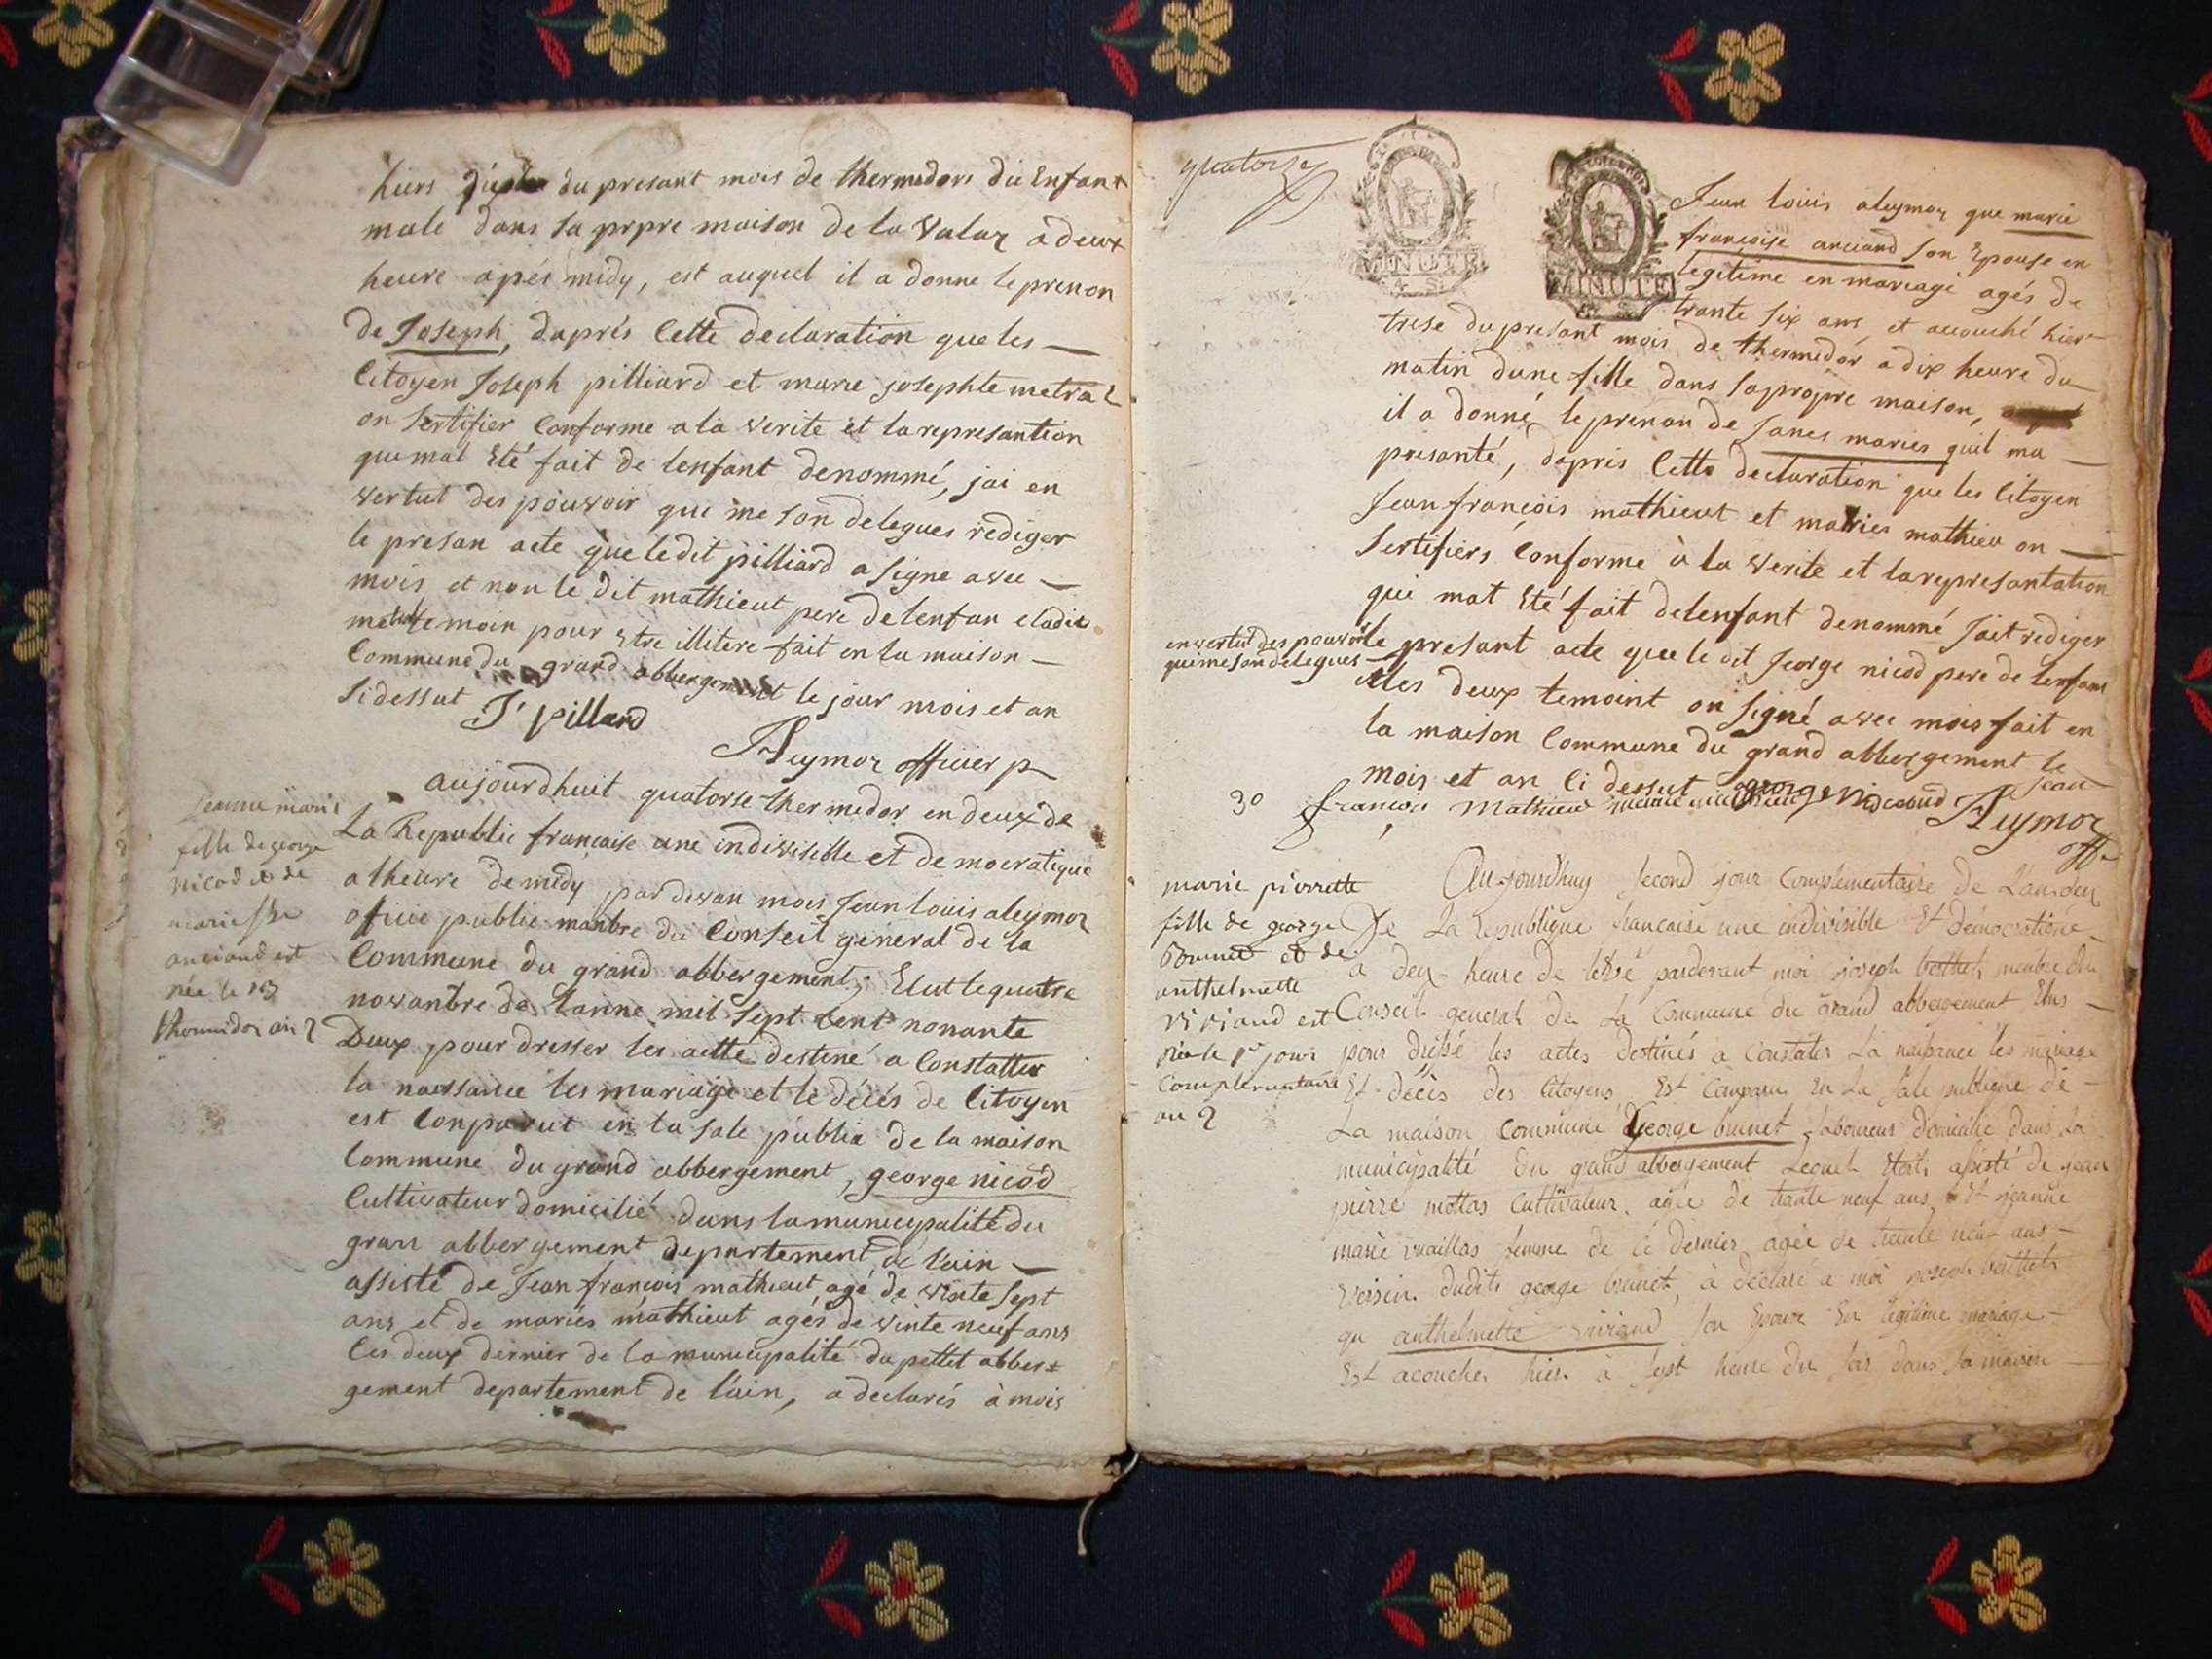 hiers du presant mois de thermedors du Enfant
male dans sa prpre maison de la valaz a deux
heure apés midy, est auquel il a donne le prenon
de Joseph, daprés Cette declaration que les —
Citoyen Joseph pilliard et marie josephte metral
on Sertifier Conforme a la verite et la represantion
qui mat Eté fait de lenfant denommé, jai en
vertut des pouvoir qui me son delegues rediger
le presan acte que le dit pilliard a signe avec —
mois, et non le dit mathieut pere de lenfan eladie
temoin pour Etre illitere fait en la maison —
Commune du grand abbergement le jour mois et an
Si dessut J pillard
Aleymoz officier p
aujourdhuit quatorse thermedor en deux de
La Republic francaise une indivisible et democratique
a lheure de midy par devan mois Jean louis aleymoz
officie public manbre du Conseil general de la
Commune du grand abbergement, Elut le quatre
novanbre de lanne mil sept Cent nonante
Deux pour dresser les actte destené a Constatter
la naissance les mariage et le décés de Citoyen
est Conparut en la sale public de la maison
Commune du grand abbergement, george nicod
Cultivateur domicilié dans la municypalité du
gran abbergement departement de l'ain —
assisté de Jean françois mathieut, agé de vinte sept
ans et de mariés mathieut agés de vinte neuf ans
les deux dernier de la municypalité du pettit abber=
gement departement de l'ain, a declarés à mois
Jeanne marie
fille de george
nicod et de
marie fse
anciand est
née le 13
thermidor an 2
quatorse
MINUTE
4. S.
MINUTE
Jean louis aleymoz que marie
françoise anciand son Epouse en
legitime en mariage agés de
trante six ans, et accouché hier
trese du presant mois de thermedor a dix heure du
matin dune fille dans sa propre maison,
il a donné le prenon de Janes maries quil ma —
presanté, dapris Cette declaration que les Citoyen
Jean françois mathieut et maries mathieu on —
Sertifiers Conforme à la verite et la represantation
qui mat Eté fait de lenfant denommé Jait rediger
en vertut des pouvoir
qui me son delegues —
le presant acte que le dit george nicod pere de lenfant
et les deux temoint on signé avec mois fait en
la maison Commune du grand abbergement le
mois et an Ci dessut george nicod Jean
30 françois Mathieu Aleymoz
off
marie pierrette
fille de george
Brunet et de
anthelmette
viviand est
née le 1er jour
Complementaire
an 2
Aujourdhuy second jour Complementaire de L'an deux
De La Republique francaise une indivisible Et Démocratique
a dex heure de pardevant moi joseph berthet membre du
Conseil general de La Commune du Grand abbergement Elus —
pour dréssé les actes destinés a Constater La naissance les mariage
Et décès des Citoyens, Est Comparu En La sale publique de —
La maison Commune George brunet laboureur domicilié dans La
municipalité du grand abbergement Lequel Etoit assisté de jean
pierre mottas Cultivateur, agée de trante neuf ans, Et jeanne
marie vuaillas femme de Ce dernier agée de trente neuf ans —
voisin dudit george brunet, à déclaré a moi joseph berthet
qu anthelmette viviand son Epouse En legitime mariage —
Est acouchée hier à sept heure du soir dans sa maison —